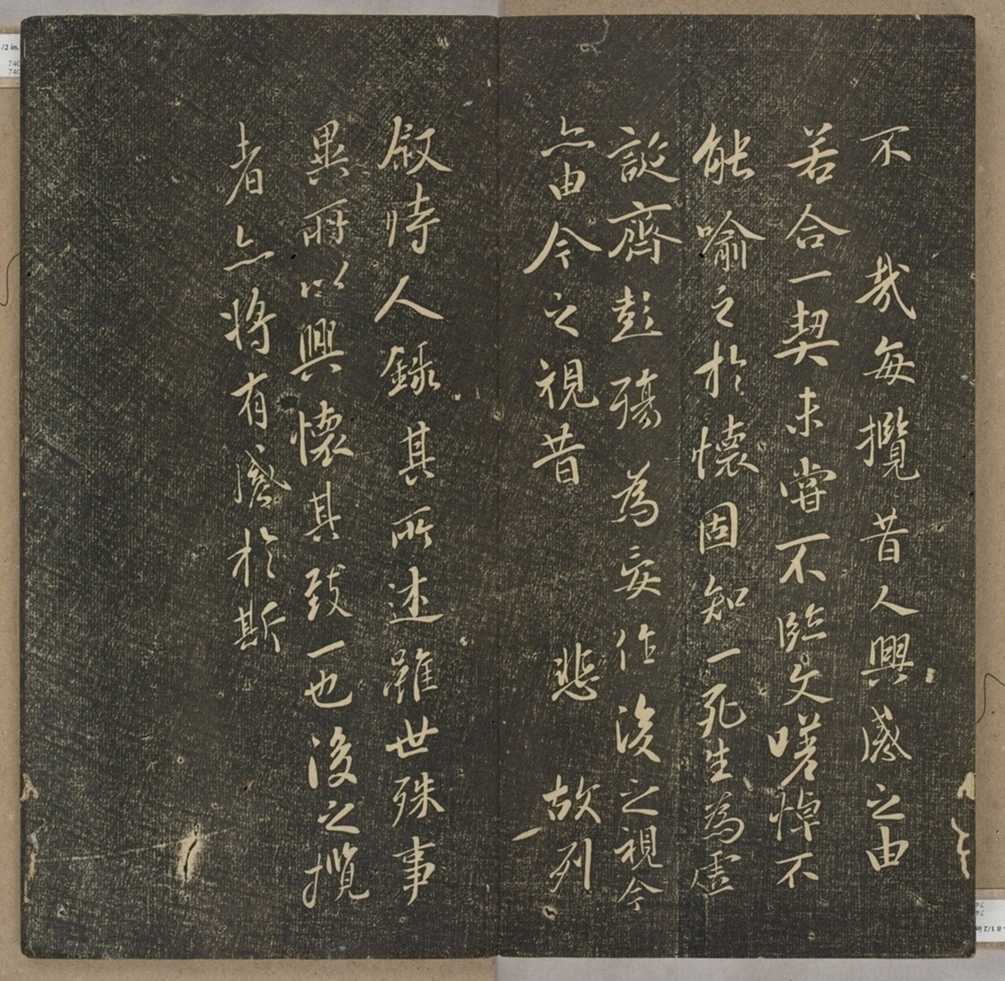 不哉每攬昔人興感之由
若合一契未嘗不臨文嗟悼不
能喻之於懷固知一死生為虛
誕齊彭殤為妄作後之視今
亦由今之視昔悲故列
叙時人錄其所述雖世殊事
異所以興懷其致一也後之攬
者亦將有感於斯
/2 in.
740
740